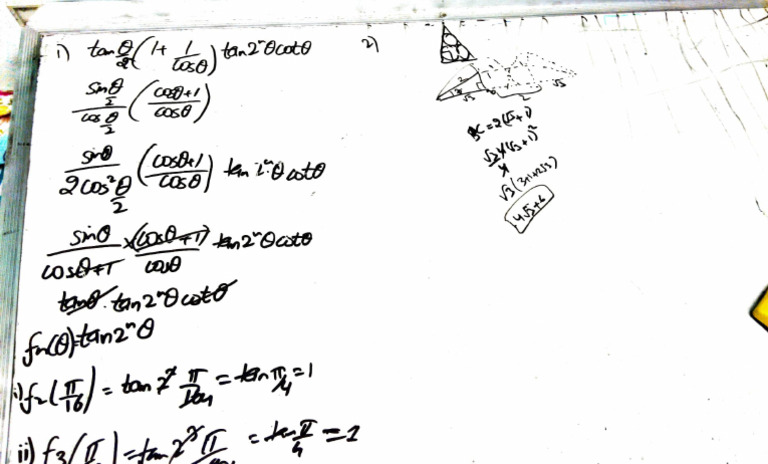 1) tan θ/2 (1 + 1/cosθ) tan2ⁿθ cotθ
sin θ/2 / cos θ/2 (cosθ+1 / cosθ)
sinθ / 2cos² θ/2 (cosθ+1 / cosθ) tan 2ⁿθ cotθ
sinθ / cosθ+1 × (cosθ+1) / cosθ tan2ⁿθ cotθ
tanθ · tan2ⁿθ cotθ
fn(θ)=tan2ⁿθ
i) f2(π/16) = tan 2² π/16 = tan π/4 = 1
ii) f3(π = tan 2³ π = tan π/4 = 1
2)
2
√3
2
√3
= 2(√3+1)
√3 (√3+1)²
4
√3 (3+1+2√3)
4√3+6